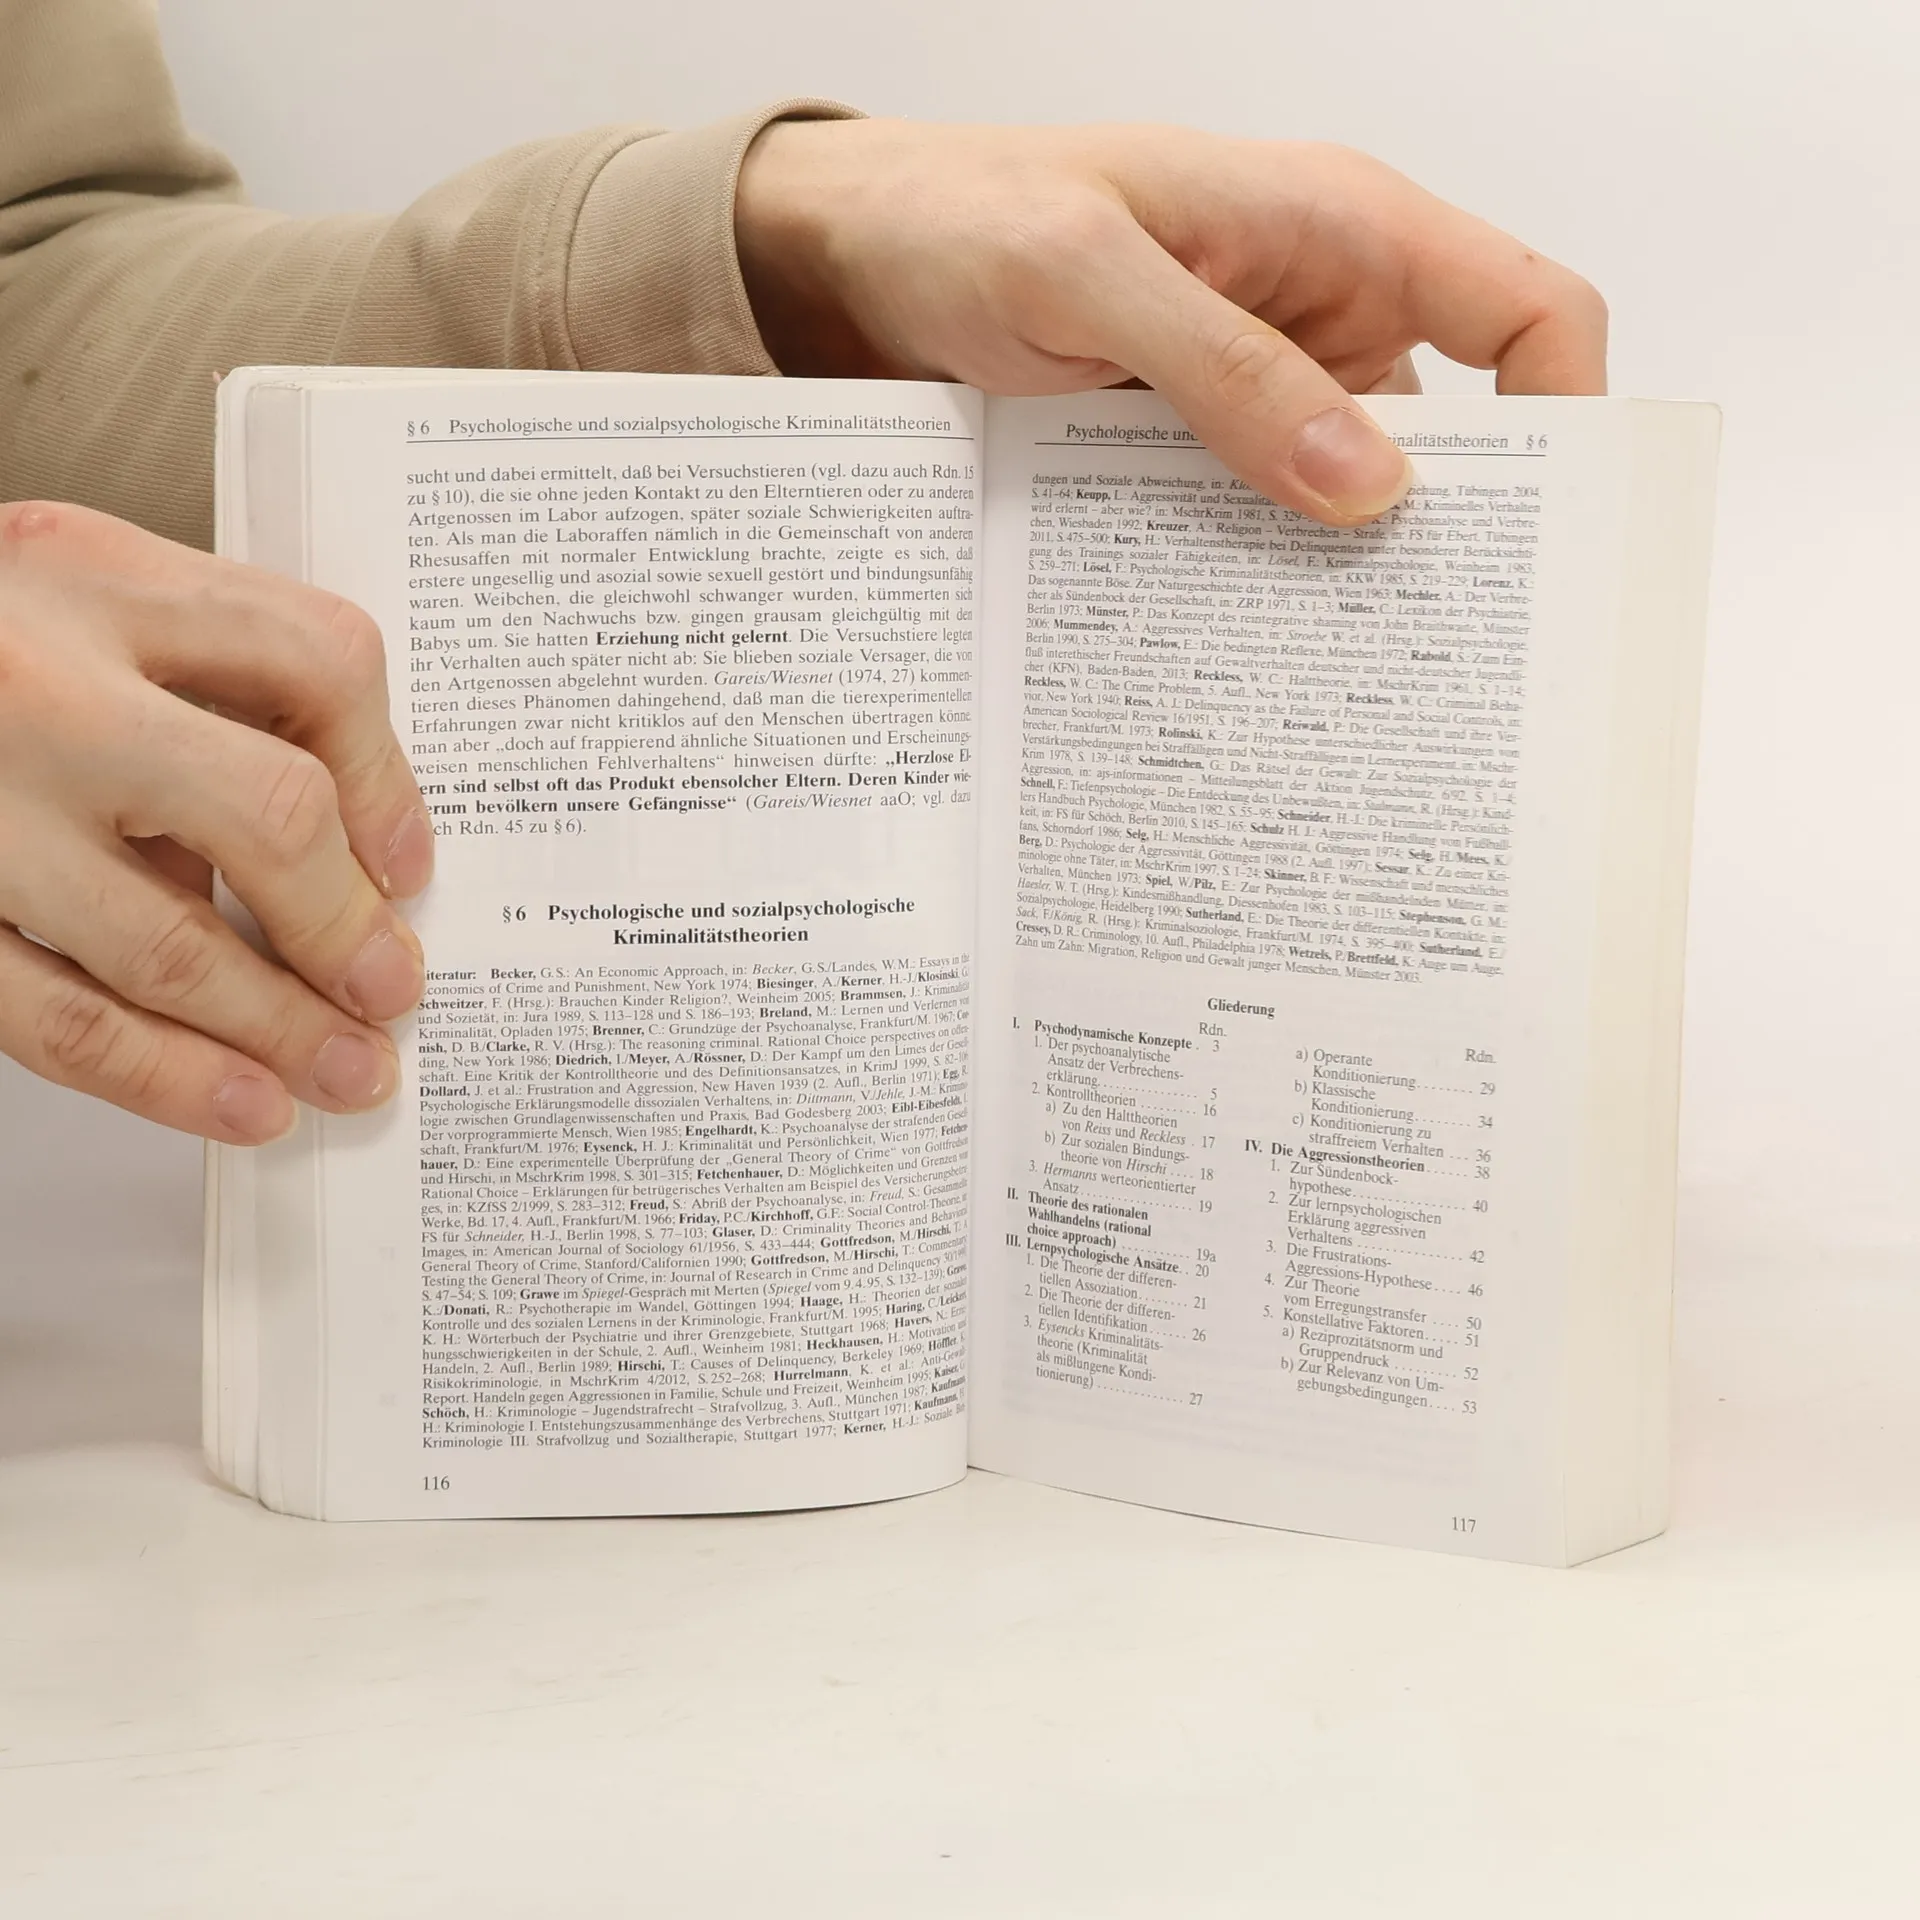 § 6 Psychologische und sozialpsychologische Kriminalitätstheorien
sucht und dabei ermittelt, daß bei Versuchstieren (vgl. dazu auch Rdn. 15
zu § 10), die sie ohne jeden Kontakt zu den Elterntieren oder zu anderen
Artgenossen im Labor aufzogen, später soziale Schwierigkeiten auftra-
ten. Als man die Laboraffen nämlich in die Gemeinschaft von anderen
Rhesusaffen mit normaler Entwicklung brachte, zeigte es sich, daß
erstere ungesellig und asozial sowie sexuell gestört und bindungsunfähig
waren. Weibchen, die gleichwohl schwanger wurden, kümmerten sich
kaum um den Nachwuchs bzw. gingen grausam gleichgültig mit den
Babys um. Sie hatten Erziehung nicht gelernt. Die Versuchstiere legten
ihr Verhalten auch später nicht ab: Sie blieben soziale Versager, die von
den Artgenossen abgelehnt wurden. Gareis/Wiesnet (1974, 27) kommen-
tieren dieses Phänomen dahingehend, daß man die tierexperimentellen
Erfahrungen zwar nicht kritiklos auf den Menschen übertragen könne,
man aber „doch auf frappierend ähnliche Situationen und Erscheinungs-
weisen menschlichen Fehlverhaltens“ hinweisen dürfte: „Herzlose El-
ern sind selbst oft das Produkt ebensolcher Eltern. Deren Kinder wie-
erum bevölkern unsere Gefängnisse“ (Gareis/Wiesnet aaO; vgl. dazu
ch Rdn. 45 zu § 6).
§ 6 Psychologische und sozialpsychologische
Kriminalitätstheorien
iteratur: Becker, G.S.: An Economic Approach, in: Becker, G.S./Landes, W.M.: Essays in the
conomics of Crime and Punishment, New York 1974; Biesinger, A./Kerner, H.-J./Klosinski, G./
Schweitzer, F. (Hrsg.): Brauchen Kinder Religion?, Weinheim 2005; Brammsen, J.: Kriminalität
und Sozietät, in: Jura 1989, S. 113–128 und S. 186–193; Breland, M.: Lernen und Verlernen von
Kriminalität, Opladen 1975; Brenner, C.: Grundzüge der Psychoanalyse, Frankfurt/M. 1967; Cor-
nish, D. B./Clarke, R. V. (Hrsg.): The reasoning criminal. Rational Choice perspectives on offen-
ding, New York 1986; Diedrich, I./Meyer, A./Rössner, D.: Der Kampf um den Limes der Gesell-
schaft. Eine Kritik der Kontrolltheorie und des Definitionsansatzes, in KrimJ 1999, S. 82-106
Dollard, J. et al.: Frustration and Aggression, New Haven 1939 (2. Aufl., Berlin 1971); Egg, R.
Psychologische Erklärungsmodelle dissozialen Verhaltens, in: Dittmann, V./Jehle, J.-M.: Krimino-
logie zwischen Grundlagenwissenschaften und Praxis, Bad Godesberg 2003; Eibl-Eibesfeldt, I.
Der vorprogrammierte Mensch, Wien 1985; Engelhardt, K.: Psychoanalyse der strafenden Gesell-
schaft, Frankfurt/M. 1976; Eysenck, H. J.: Kriminalität und Persönlichkeit, Wien 1977; Fetchen-
hauer, D.: Eine experimentelle Überprüfung der „General Theory of Crime“ von Gottfredson
und Hirschi, in MschrKrim 1998, S. 301–315; Fetchenhauer, D.: Möglichkeiten und Grenzen von
Rational Choice – Erklärungen für betrügerisches Verhalten am Beispiel des Versicherungsbetru-
ges, in: KZfSS 2/1999, S. 283–312; Freud, S.: Abriß der Psychoanalyse, in: Freud, S.: Gesammelte
Werke, Bd. 17, 4. Aufl., Frankfurt/M. 1966; Friday, P.C./Kirchhoff, G.F.: Social Control-Theorie, in
FS für Schneider, H.-J., Berlin 1998, S. 77–103; Glaser, D.: Criminality Theories and Behavioral
Images, in: American Journal of Sociology 61/1956, S. 433–444; Gottfredson, M./Hirschi, T.: A
General Theory of Crime, Stanford/Californien 1990; Gottfredson, M./Hirschi, T.: Commentary
Testing the General Theory of Crime, in: Journal of Research in Crime and Delinquency 30/1993
S. 47–54; S. 109; Grawe im Spiegel-Gespräch mit Merten (Spiegel vom 9.4.95, S. 132–139); Grawe,
K./Donati, R.: Psychotherapie im Wandel, Göttingen 1994; Haage, H.: Theorien der sozialen
Kontrolle und des sozialen Lernens in der Kriminologie, Frankfurt/M. 1995; Haring, C./Leickert,
K. H.: Wörterbuch der Psychiatrie und ihrer Grenzgebiete, Stuttgart 1968; Havers, N.: Erzie-
hungsschwierigkeiten in der Schule, 2. Aufl., Weinheim 1981; Heckhausen, H.: Motivation und
Handeln, 2. Aufl., Berlin 1989; Hirschi, T.: Causes of Delinquency, Berkeley 1969; Höffler, K.
Risikokriminologie, in MschrKrim 4/2012, S. 252–268; Hurrelmann, K. et al.: Anti-Gewalt-
Report. Handeln gegen Aggressionen in Familie, Schule und Freizeit, Weinheim 1995; Kaiser, G.
Schöch, H.: Kriminologie – Jugendstrafrecht – Strafvollzug, 3. Aufl., München 1987; Kaufmann,
H.: Kriminologie I. Entstehungszusammenhänge des Verbrechens, Stuttgart 1971; Kaufmann, H.
Kriminologie III. Strafvollzug und Sozialtherapie, Stuttgart 1977; Kerner, H.-J.: Soziale Bin
116
Psychologische und inalitätstheorien § 6
dungen und Soziale Abweichung, in: ziehung, Tübingen 2004,
S. 41–64; Keupp, L.: Aggressivität und M.: Kriminelles Verhalten
wird erlernt – aber wie? in: MschrKrim 1981, S. 329– K.: Psychoanalyse und Verbre-
chen, Wiesbaden 1992; Kreuzer, A.: Religion – Verbrechen – Strafe, in: FS für Ebert, Tübingen
2011, S. 475–500; Kury, H.: Verhaltenstherapie bei Delinquenten unter besonderer Berücksichti-
gung des Trainings sozialer Fähigkeiten, in: Lösel, F.: Kriminalpsychologie, Weinheim 1983,
S. 259–271; Lösel, F.: Psychologische Kriminalitätstheorien, in: KKW 1985, S. 219–229; Lorenz, K.:
Das sogenannte Böse. Zur Naturgeschichte der Aggression, Wien 1963; Mechler, A.: Der Verbre-
cher als Sündenbock der Gesellschaft, in: ZRP 1971, S. 1–3; Müller, C.: Lexikon der Psychiatrie,
Berlin 1973; Münster, P.: Das Konzept des reintegrative shaming von John Braithwaite, Münster
2006; Mummendey, A.: Aggressives Verhalten, in: Stroebe W. et al. (Hrsg.): Sozialpsychologie,
Berlin 1990, S. 275–304; Pawlow, E.: Die bedingten Reflexe, München 1972; Rabold, S.: Zum Ein-
fluß interethischer Freundschaften auf Gewaltverhalten deutscher und nicht-deutscher Jugendli-
cher (KFN), Baden-Baden, 2013; Reckless, W. C.: Halttheorie, in: MschrKrim 1961, S. 1–14;
Reckless, W. C.: The Crime Problem, 5. Aufl., New York 1973; Reckless, W. C.: Criminal Beha-
vior, New York 1940; Reiss, A. J.: Delinquency as the Failure of Personal and Social Controls, in:
American Sociological Review 16/1951, S. 196–207; Reiwald, P.: Die Gesellschaft und ihre Ver-
brecher, Frankfurt/M. 1973; Rolinski, K.: Zur Hypothese unterschiedlicher Auswirkungen von
Verstärkungsbedingungen bei Straffälligen und Nicht-Straffälligen im Lernexperiment, in: Mschr-
Krim 1978, S. 139–148; Schmidtchen, G.: Das Rätsel der Gewalt: Zur Sozialpsychologie der
Aggression, in: ajs-informationen – Mitteilungsblatt der Aktion Jugendschutz, 6/92, S. 1–4;
Schnell, F.: Tiefenpsychologie – Die Entdeckung des Unbewußten, in: Stalmann, R. (Hrsg.): Kind-
lers Handbuch Psychologie, München 1982, S. 55–95; Schneider, H.-J.: Die kriminelle Persönlich-
keit, in: FS für Schöch, Berlin 2010, S. 145–165; Schulz H. J.: Aggressive Handlung von Fußball-
fans, Schorndorf 1986; Selg, H.: Menschliche Aggressivität, Göttingen 1974; Selg, H./Mees, K./
Berg, D.: Psychologie der Aggressivität, Göttingen 1988 (2. Aufl. 1997); Sessar, K.: Zu einer Kri-
minologie ohne Täter, in: MschrKrim 1997, S. 1–24; Skinner, B. F.: Wissenschaft und menschliches
Verhalten, München 1973; Spiel, W./Pilz, E.: Zur Psychologie der mißhandelnden Mütter, in:
Haesler, W. T. (Hrsg.): Kindesmißhandlung, Diessenhofen 1983, S. 103–115; Stephenson, G. M.:
Sozialpsychologie, Heidelberg 1990; Sutherland, E.: Die Theorie der differentiellen Kontakte, in:
Sack, F./König, R. (Hrsg.): Kriminalsoziologie, Frankfurt/M. 1974, S. 395–400; Sutherland, E./
Cressey, D. R.: Criminology, 10. Aufl., Philadelphia 1978; Wetzels, P./Brettfeld, K: Auge um Auge,
Zahn um Zahn: Migration, Religion und Gewalt junger Menschen, Münster 2003.
Gliederung
Rdn.
I. Psychodynamische Konzepte . 3
1. Der psychoanalytische
Ansatz der Verbrechens-
erklärung............... 5
2. Kontrolltheorien ......... 16
a) Zu den Halttheorien
von Reiss und Reckless . 17
b) Zur sozialen Bindungs-
theorie von Hirschi .... 18
3. Hermanns werteorientierter
Ansatz................. 19
II. Theorie des rationalen
Wahlhandelns (rational
choice approach) .......... 19a
III. Lernpsychologische Ansätze.. 20
1. Die Theorie der differen-
tiellen Assoziation........ 21
2. Die Theorie der differen-
tiellen Identifikation...... 26
3. Eysencks Kriminalitäts-
theorie (Kriminalität
als mißlungene Kondi-
tionierung) ............. 27
Rdn.
a) Operante
Konditionierung........ 29
b) Klassische
Konditionierung........ 34
c) Konditionierung zu
straffreiem Verhalten ... 36
IV. Die Aggressionstheorien...... 38
1. Zur Sündenbock-
hypothese............... 40
2. Zur lernpsychologischen
Erklärung aggressiven
Verhaltens .............. 42
3. Die Frustrations-
Aggressions-Hypothese.... 46
4. Zur Theorie
vom Erregungstransfer .... 50
5. Konstellative Faktoren..... 51
a) Reziprozitätsnorm und
Gruppendruck ........ 52
b) Zur Relevanz von Um-
gebungsbedingungen.... 53
117